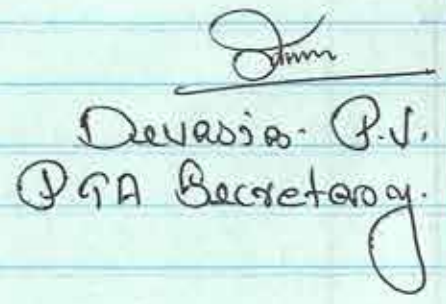 Devasia. P.V.
PTA Secretary.